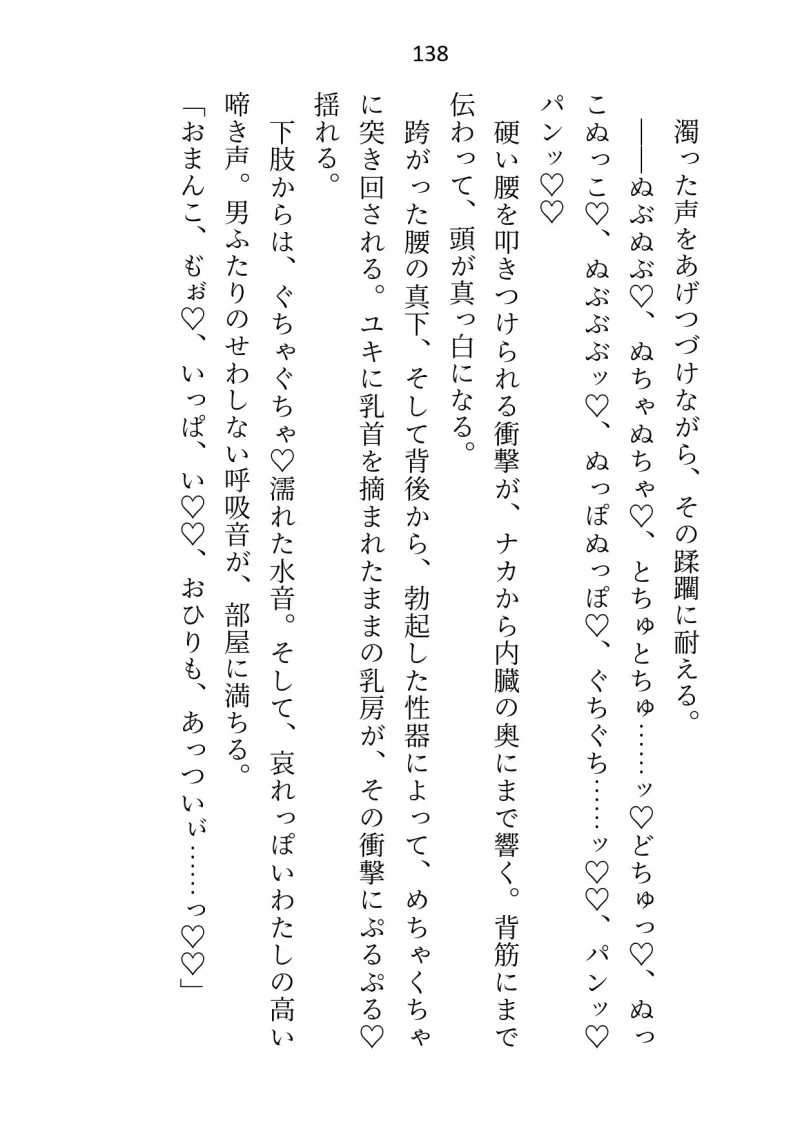 138
濁った声をあげつづけながら、その蹂躙に耐える。
――ぬぶぬぶ♡、ぬちゃぬちゃ♡、とちゅとちゅ……ッ♡どちゅっ♡、ぬっ
こぬっこ♡、ぬぶぶぶッ♡、ぬっぽぬっぽ♡、ぐちぐち……ッ♡♡、パンッ♡
パンッ♡♡
硬い腰を叩きつけられる衝撃が、ナカから内臓の奥にまで響く。背筋にまで
伝わって、頭が真っ白になる。
跨がった腰の真下、そして背後から、勃起した性器によって、めちゃくちゃ
に突き回される。ユキに乳首を摘まれたままの乳房が、その衝撃にぷるぷる♡
揺れる。
下肢からは、ぐちゃぐちゃ♡濡れた水音。そして、哀れっぽいわたしの高い
啼き声。男ふたりのせわしない呼吸音が、部屋に満ちる。
「おまんこ、も゛ぉ♡、いっぱ、い♡♡、おひりも、あっついぃ゛……っ♡♡」